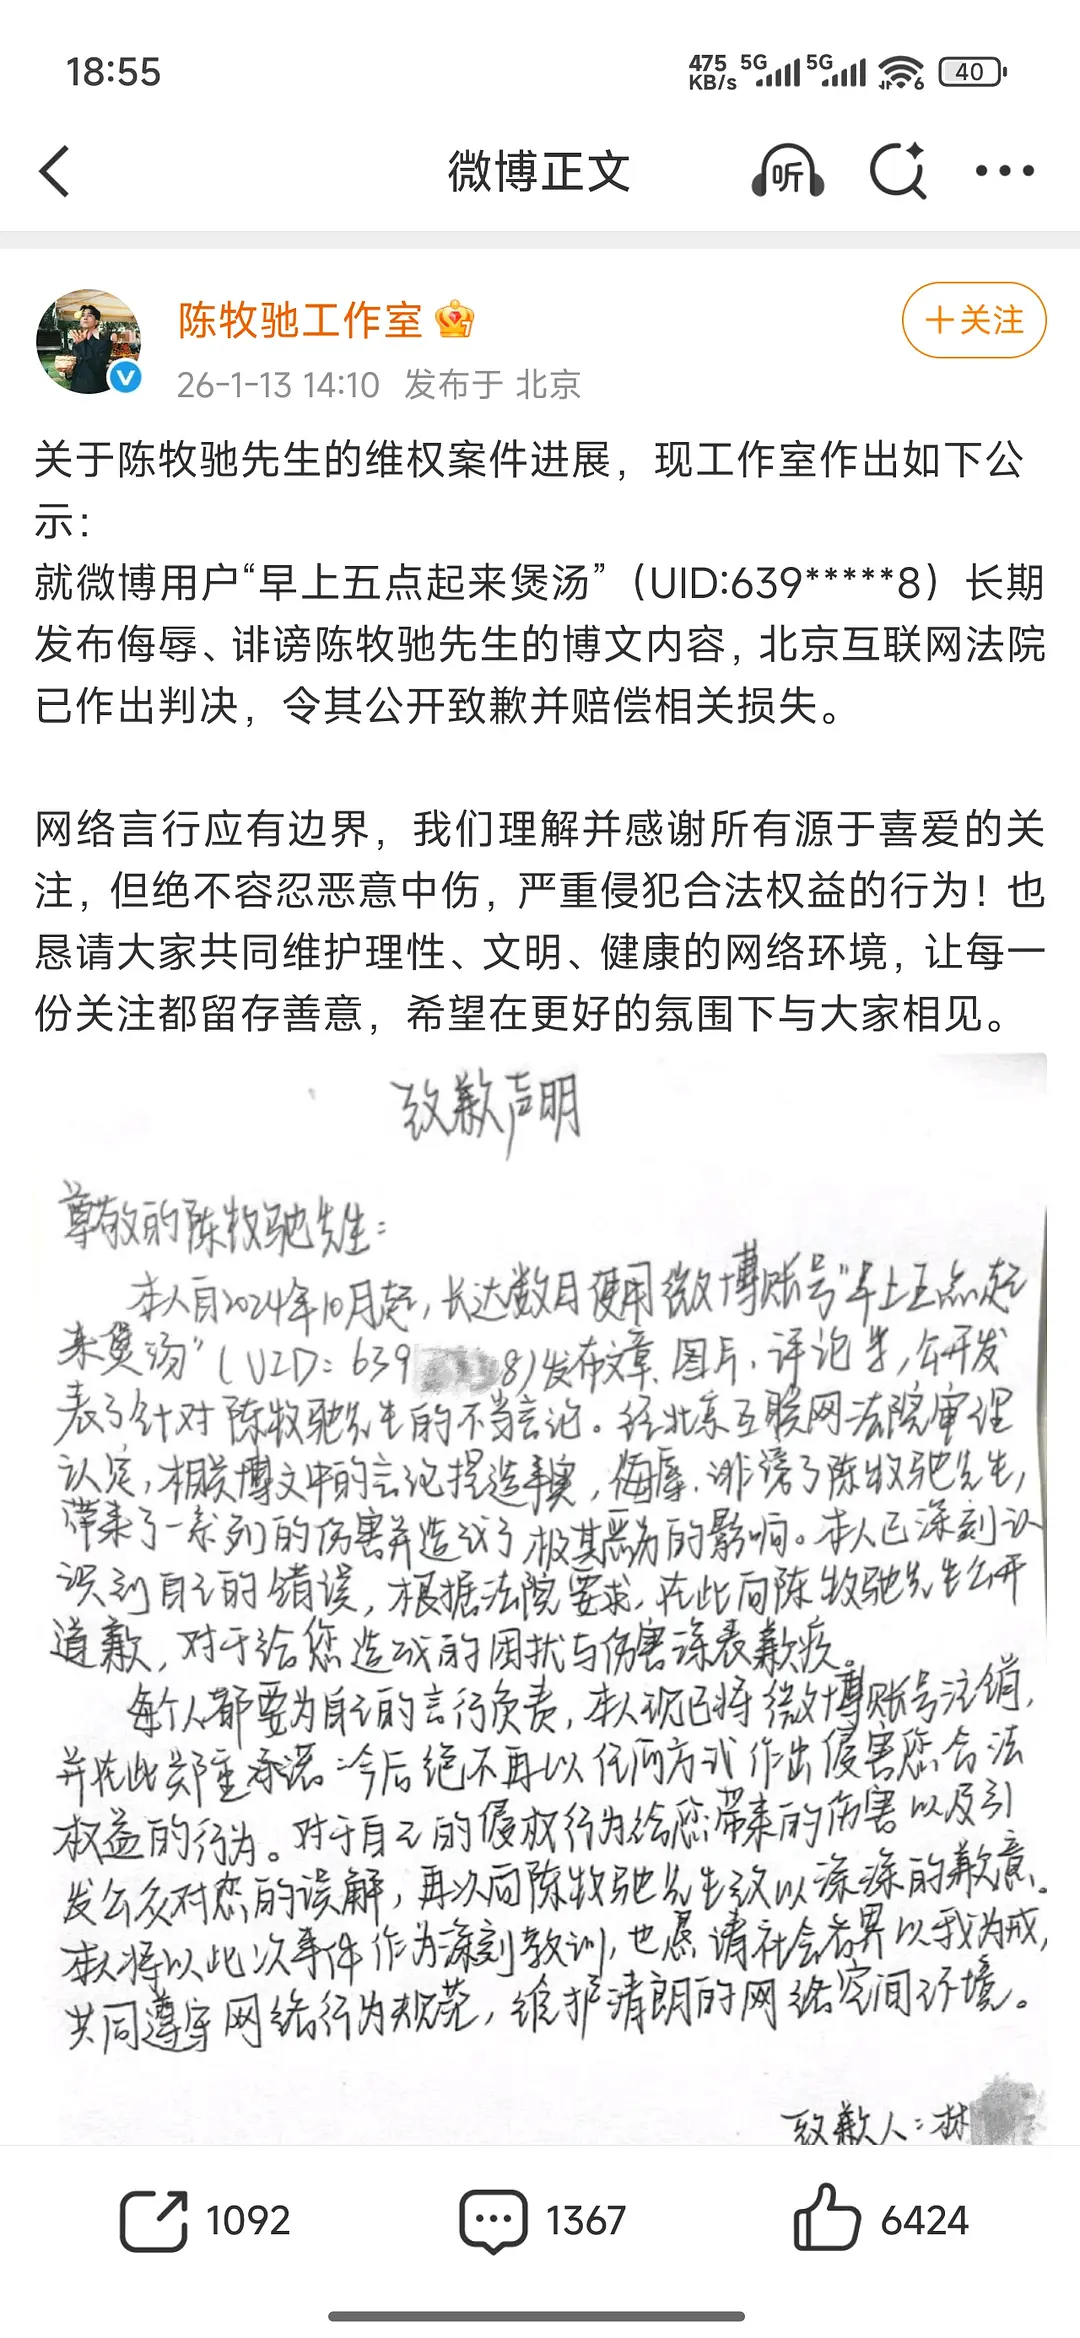 18:55
475 KB/s 5G 5G 6 40
微博正文
听
陈牧驰工作室
+关注
26-1-13 14:10 发布于 北京
关于陈牧驰先生的维权案件进展，现工作室作出如下公
示：
就微博用户“早上五点起来煲汤”（UID:639*****8）长期
发布侮辱、诽谤陈牧驰先生的博文内容，北京互联网法院
已作出判决，令其公开致歉并赔偿相关损失。
网络言行应有边界，我们理解并感谢所有源于喜爱的关
注，但绝不容忍恶意中伤，严重侵犯合法权益的行为！也
恳请大家共同维护理性、文明、健康的网络环境，让每一
份关注都留存善意，希望在更好的氛围下与大家相见。
致歉声明
尊敬的陈牧驰先生：
本人自2024年10月起，长达数月使用微博账号“早上五点起
来煲汤”（UID：639 8）发布文章、图片、评论等，公开发
表了针对陈牧驰先生的不当言论。经北京互联网法院审理
认定，相关博文中的言论捏造事实，侮辱、诽谤了陈牧驰先生，
带来了一系列的伤害并造成了极其恶劣的影响。本人已深刻认
识到自己的错误，根据法院要求，在此向陈牧驰先生公开
道歉，对于给您造成的困扰与伤害深表歉疚。
每个人都要为自己的言行负责，本人现已将微博账号注销，
并在此郑重承诺：今后绝不再以任何方式作出侵害您合法
权益的行为。对于自己的侵权行为给您带来的伤害以及引
发公众对您的误解，再次向陈牧驰先生致以深深的歉意。
本人将以此次事件作为深刻教训，也愿请社会各界以我为戒，
共同遵守网络行为规范，维护清朗的网络空间环境。
致歉人：林
1092
1367
6424